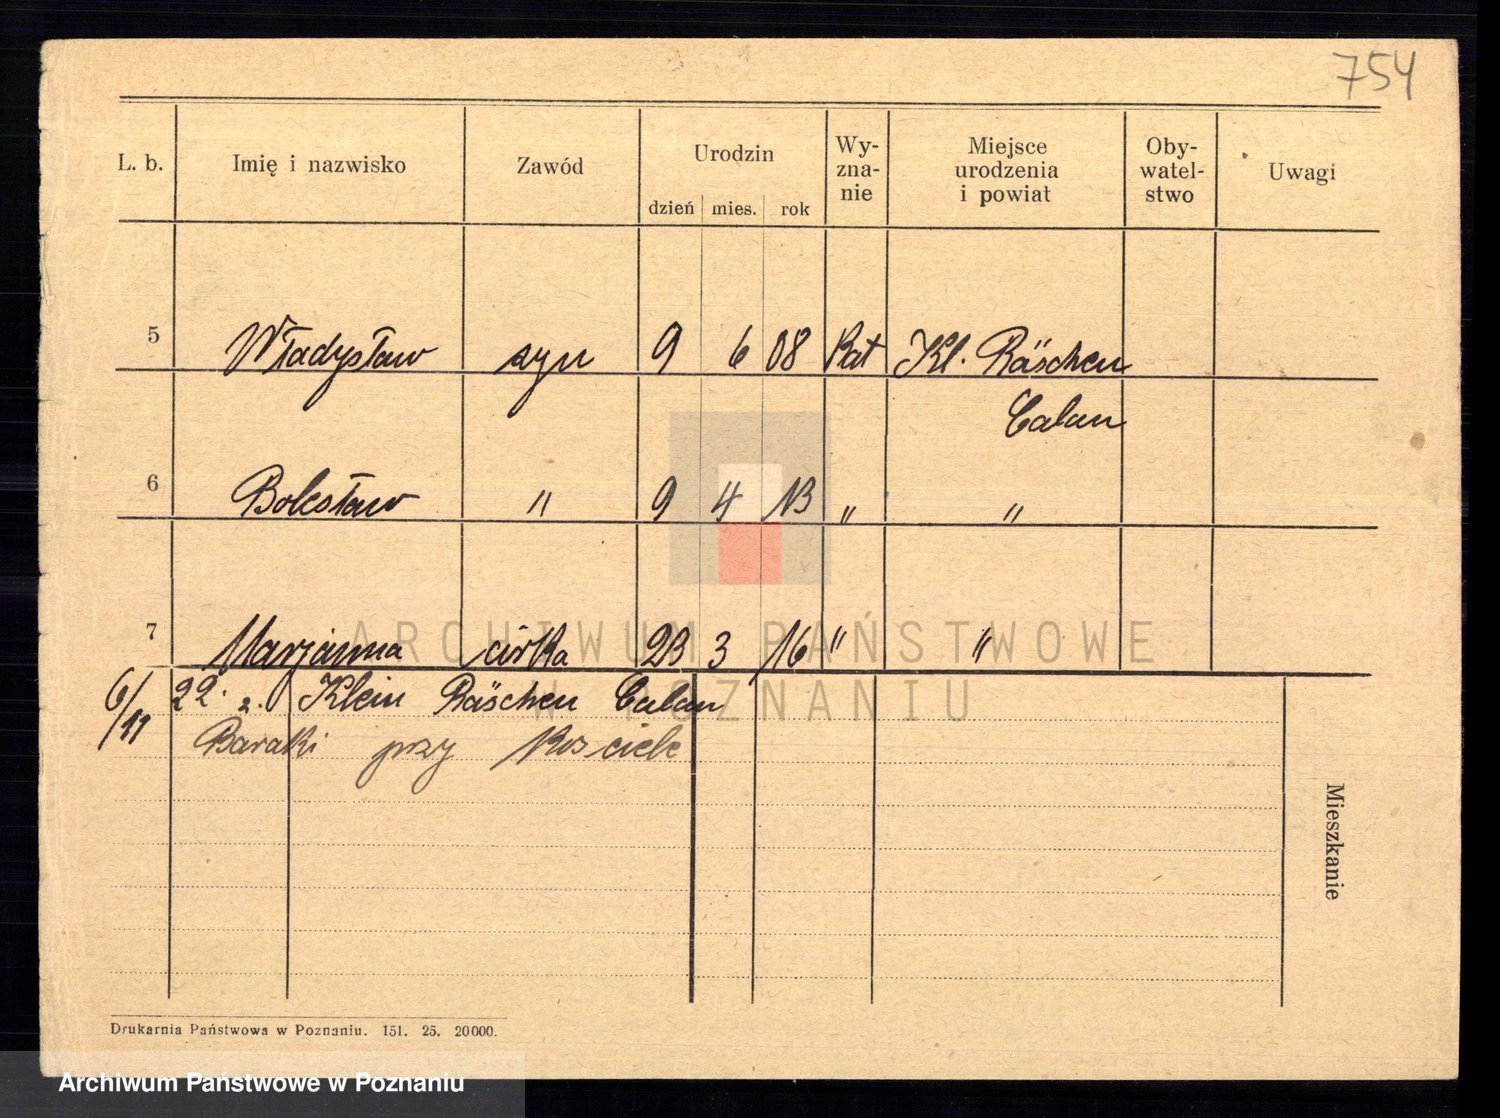 754
L. b. Imię i nazwisko Zawód Urodzin Wy-zna-nie Miejsce urodzenia i powiat Oby-watel-stwo Uwagi
dzień mies. rok
5 Władysław syn 9 6 08 Kat Kl. Räschen
Calau
6 Bolesław " 9 4 13 " "
7 Marjanna córka 23 3 16 " "
6/11 22. z. Klein Räschen Calau
Baraki przy Kościele
Mieszkanie
Drukarnia Państwowa w Poznaniu. 151. 25. 20000.
ARCHIWUM PAŃSTWOWE
W POZNANIU
Archiwum Państwowe w Poznaniu